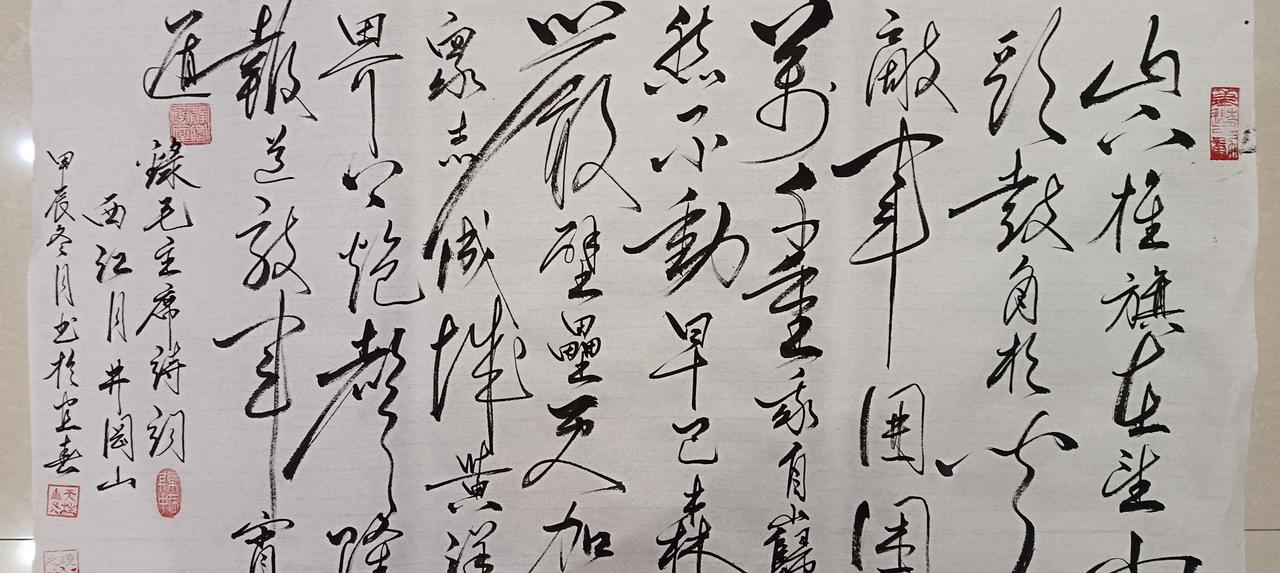 山下旌旗在望山
頭鼓角相聞
敵軍圍困
萬千重我自巋
然不動早已森
嚴壁壘更加
眾志成城黃洋
界上炮聲隆
報道敵軍宵
遁
錄毛主席詩詞
西江月井岡山
甲辰冬月书於宜春